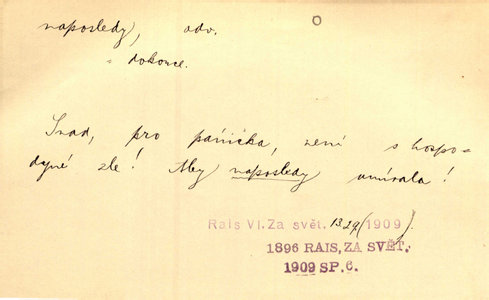 naposledy, adv.
= dokonce.
Snad, pro pánička, není s hospo-
dyně zle! Aby naposledy umírala!
Rais VI. Za svět. 13.29 (1909).
1896 RAIS, ZA SVĚT.
1909 SP. 6.